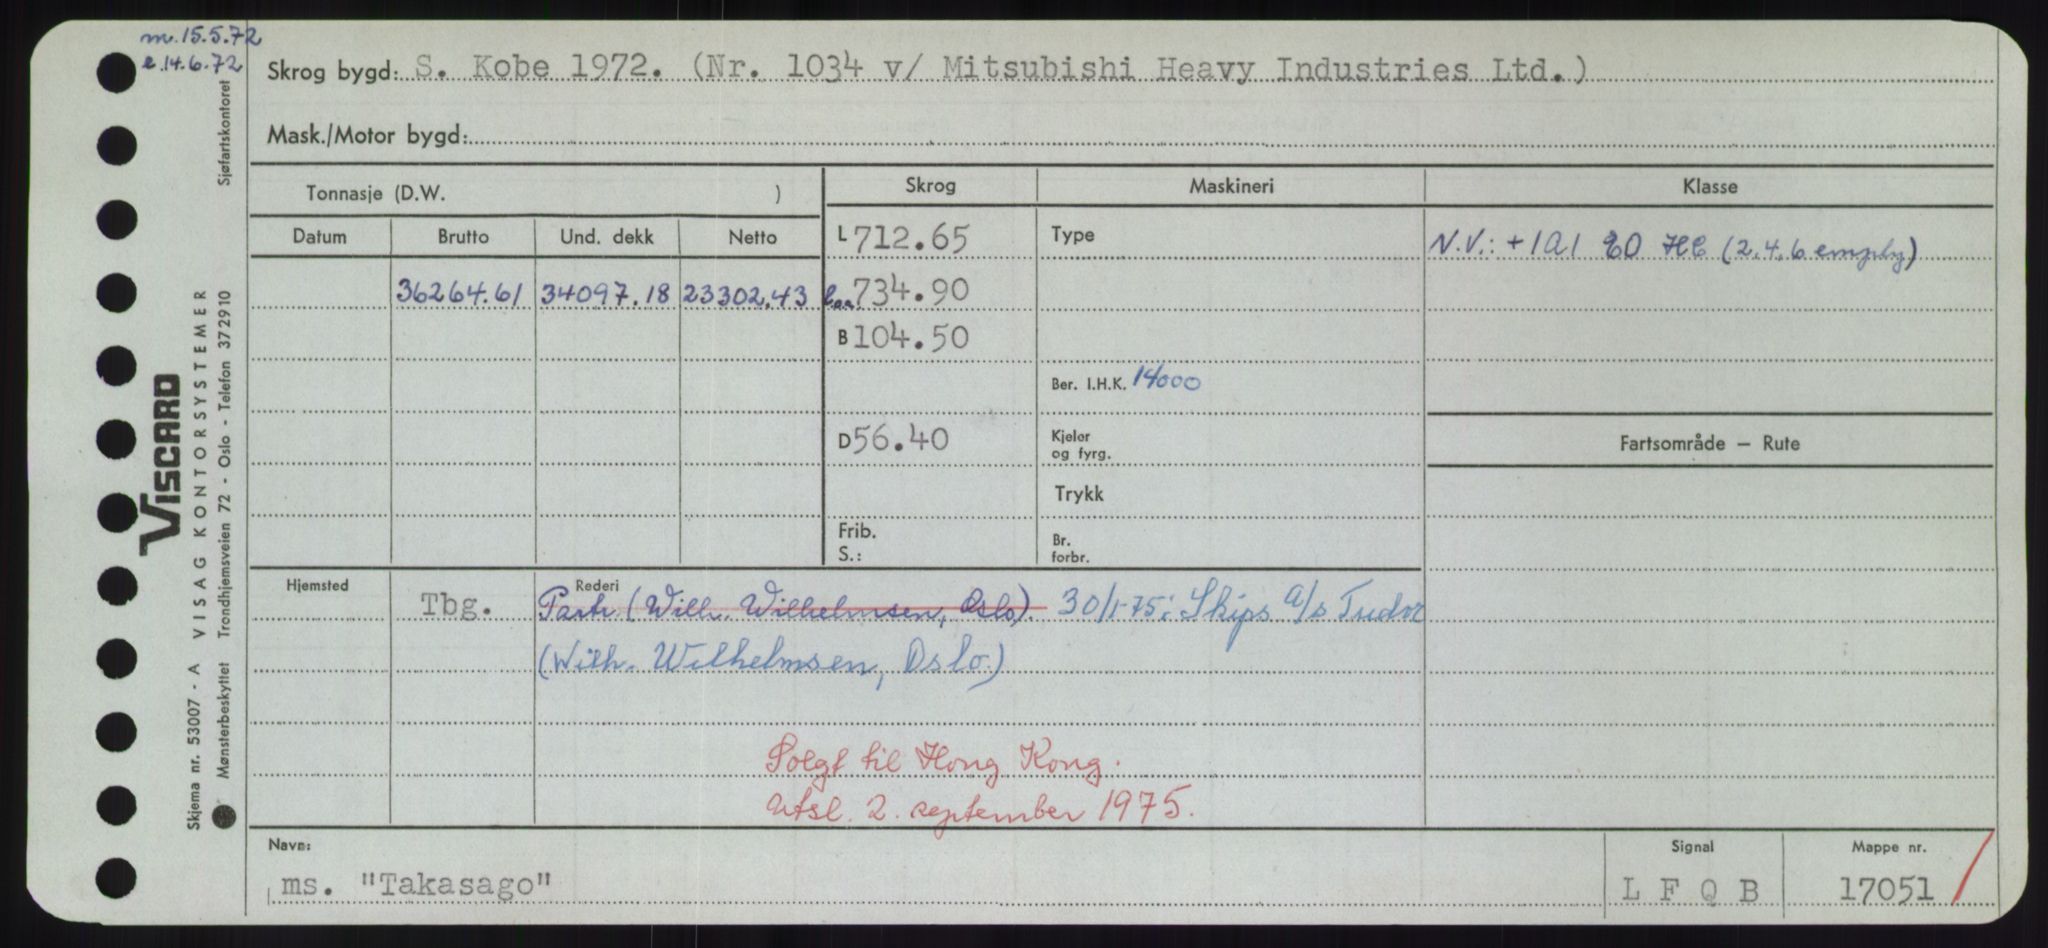 m. 15.5.72
e. 14.6.72
Skrog bygd: S. Kobe 1972. (Nr. 1034 v/ Mitsubishi Heavy Industries Ltd.)
Mask./Motor bygd:
Tonnasje (D.W. )
Skrog
Maskineri
Klasse
Datum
Brutto
Und. dekk
Netto
36264.61
34097.18
23302.43
L 712.65
Loa. 734.90
B 104.50
D 56.40
Frib.
S.:
Type
Ber. I.H.K. 14000
Kjeler
og fyrg.
Trykk
Br.
forbr.
N.V.: +1A1 E0 HC (2.4.6 empty)
Fartsområde – Rute
Hjemsted
Tbg.
Rederi
Partr (Wilh. Wilhelmsen, Oslo). 30/1-75: Skips A/s Tudor
(Wilh. Wilhelmsen, Oslo.)
Solgt til Hong Kong.
Utsl. 2. september 1975.
Navn:
ms. "Takasago"
Signal
L F Q B
Mappe nr.
17051
Sjøfartskontoret
VISCARD
VISAG KONTORSYSTEMER
Skjema nr. 53007 - A
Mønsterbeskyttet Trondhjemsveien 72 - Oslo - Telefon 372910